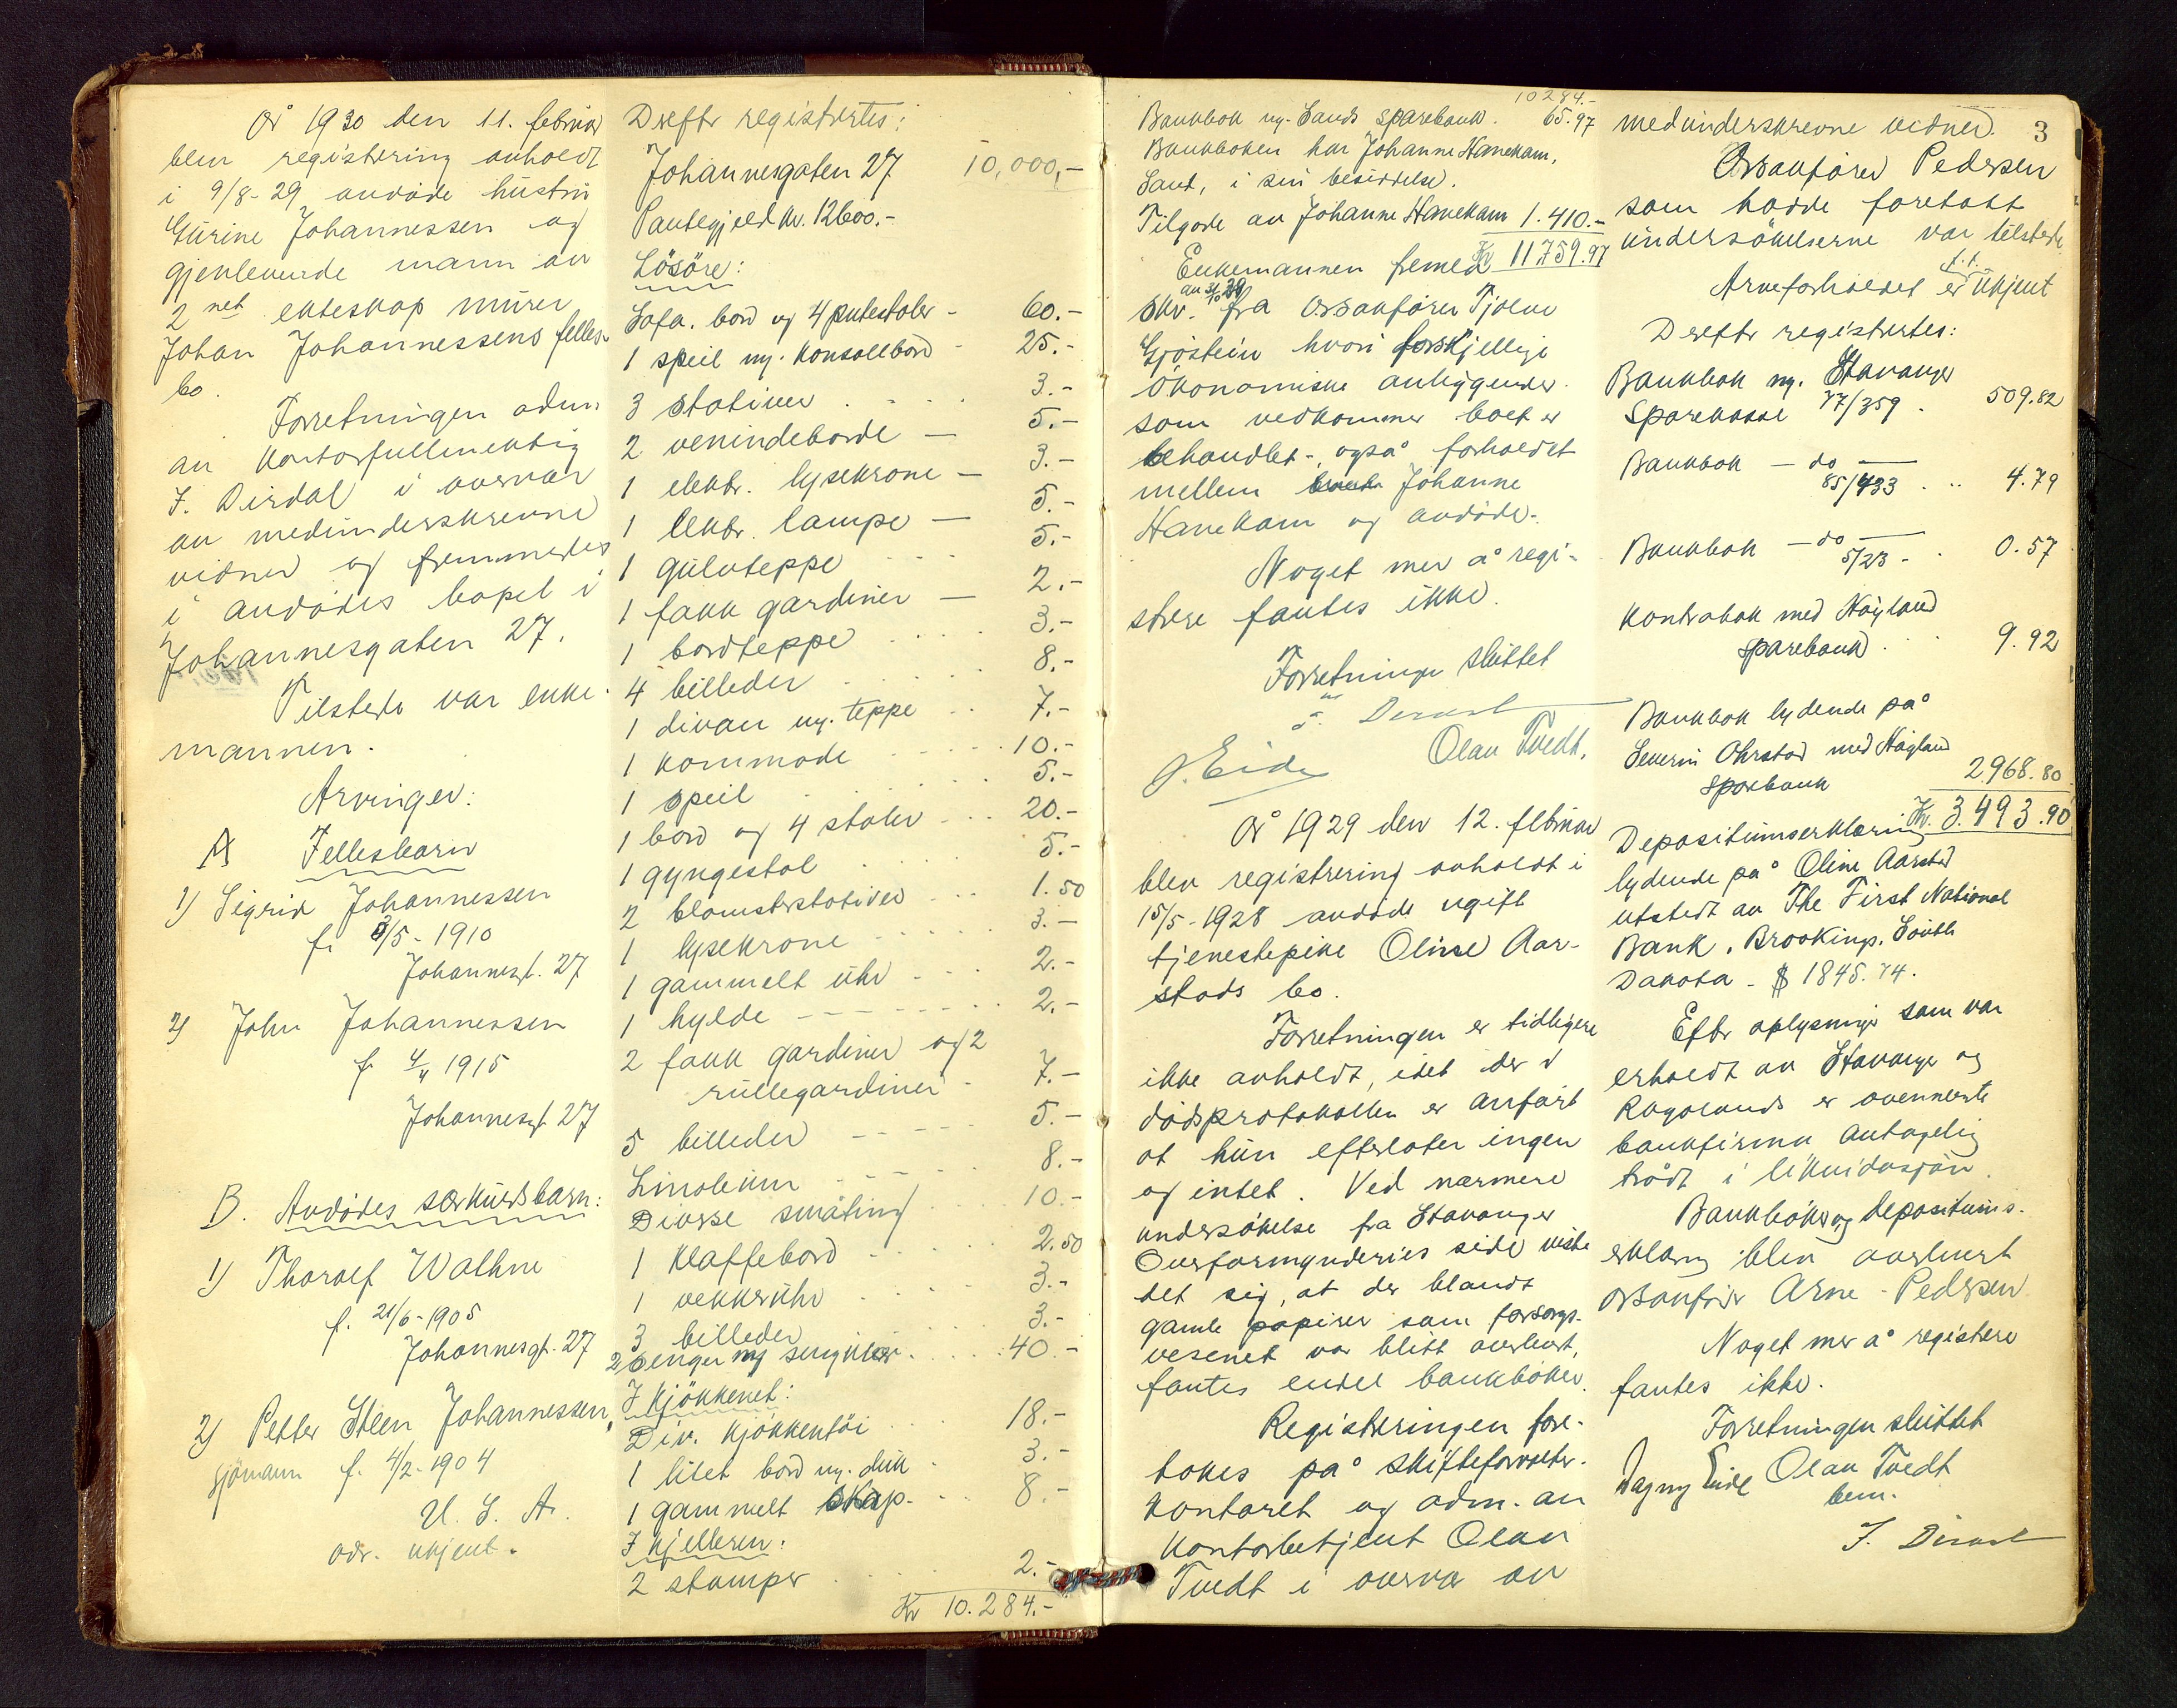 År 1930 den 11. februar
blev registrering avholdt
i 9/8-29 avdøde hustru
Gurine Johannessen og
gjenlevende mann av
2net ekteskap murer
Johan Johannessens felles-
bo.
Forretningen adm.
av kontorfullmektig
F. Dirdal i overvær
av medunderskrevne
vidner og fremmedes
i avdødes bopel i
Johannesgaten 27.
Tilstede var enke-
mannen.
Arvinger:
A Fellesbarn
1) Sigrid Johannessen
f. 3/5-1910
Johannesgt. 27
2) John Johannessen
f. 4/4 1915
Johannesgt 27
B. Avdødes særkuldsbarn:
1) Thoralf Walhne
f. 21/6-1905
Johannesgt. 27
2) Petter Steen Johannessen,
sjömann f. 4/2-1904
U. S. A.
adr. ukjent.
Derefter registrertes:
Johannesgaten 27 10,000,-
Pantegjeld kr. 12600.-
Lösöre:
Sofa. bord og 4 putestoler - 60.-
1 speil og konsollbord - 25.-
3 stativer . . . . 3.-
2 venindeborde - 5.-
1 elektr. lysekrone - 3.-
1 elektr. lampe - 5.-
1 gulvteppe - - - 5.-
1 fakk gardiner - 2.-
1 bordteppe . . . . 3.-
4 billeder . . . . 8.-
1 divan og teppe . . 7.-
1 kommode . . . . 10.-
1 speil . . . . 5.-
1 bord og 4 stoler . . . 20.-
1 gyngestol . . . 5.-
2 blomsterstativer . . . 1.50
1 lysekrone . . . . 3.-
1 gammelt uhr - - - 2.-
1 hylde - - - - - 2.-
2 fakk gardiner og 2
rullegardiner - 7.-
5 billeder - - - - 5.-
Linoleum - - - 8.-
Diverse småting . . . 10.-
1 klaffebord . . . . 2.50
1 vekkeruhr . . . . 3.-
3 billeder . . . . 3.-
2 senger og sengklær . . . 40.-
I Kjökkenet:
Div. kjökkentöi . . . 18.-
1 litet bord og duk . 3.-
1 gammelt skap. . . 8.-
I kjelleren:
2 stamper . . . . 2.-
Kr 10.284.-
10284.-
Bankbok og Sands sparebank. 65.97
Bankboken har Johanne Hanekam,
Sand, i sin besiddelse.
Tilgode av Johanne Hanekam 1.410.-
Kr 11759.97
Enkemannen fremla
skr. av 3/10 29 fra Ossakfører Tjolve
Gjöstein hvori forskjellige
økonomiske anliggender
som vedkommer boet er
behandlet-, også forholdet
mellem Johanne
Hanekam og avdøde.
Noget mer å regi-
strere fantes ikke.
Forretningen sluttet
F. Dirdal
J. Eide Olav Tvedt,
År 1929 den 12. februar
blev registrering avholdt i
15/5-1928 avdøde ugift
tjenestepike Oline Aar-
stads bo.
Forretningen er tidligere
ikke avholdt, idet der i
dødsprotokollen er anført
at hun efterlater ingen
og intet. Ved nærmere
undersøkelse fra Stavanger
Overformynderies side viste
det sig, at der blandt
gamle papirer som forsorgs-
vesenet var blitt overlevert,
fantes endel bankbøker.
Registreringen fore-
tokes på skifteforvalter-
kontoret og adm. av
kontorbetjent Olav
Tvedt i overvær av
3
medunderskrevne vidner.
Ossakfører Pedersen
som hadde foretatt
undersökelserne var tilstede
Arveforholdet er f.t. ukjent
Derefter registrertes:
Bankbok og Stavanger
Sparekasse 77/359 . 509.82
Bankbok - do -
85/433 . . . 4.79
Bankbok - do -
5/23 - . 0.57
Kontrabok med Høyland
sparebank . . 9.92
Bankbok lydende på
Severin Ohrstad med Høyland
sparebank 2968.80
Kr. 3.493.90
Depositumserklæring
lydende på Oline Aarstad
utstedt av The First National
Bank. Brookings. South
Dakota - $ 1845.74.
Efter oplysninger som var
erholdt av Stavanger og
Rogalands er ovennevnte
bankfirma antagelig
trådt i likvidasjon.
Bankbøker og depositums-
erklæring blev overlevert
ossakfører Arne Pedersen
Noget mer å registrere
fantes ikke.
Forretningen sluttet
Dagny Eide Olav Tvedt
bem.
F. Dirdal